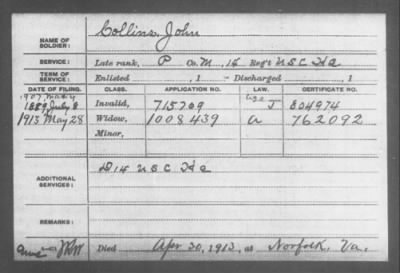 NAME OF SOLDIER: Collins, John
SERVICE: Late rank, P Co. M, 14 Reg't U S C H A
TERM OF SERVICE: Enlisted , 1 - Discharged , 1
DATE OF FILING. CLASS. APPLICATION NO. LAW. CERTIFICATE NO.
1907
1889 July 8 Invalid, 715709 J 804974
1913 May 28 Widow, 1008439 a 762092
Minor,
ADDITIONAL SERVICES: D 14 U S C H A
REMARKS:
Died Apr 30, 1913, at Norfolk, Va.